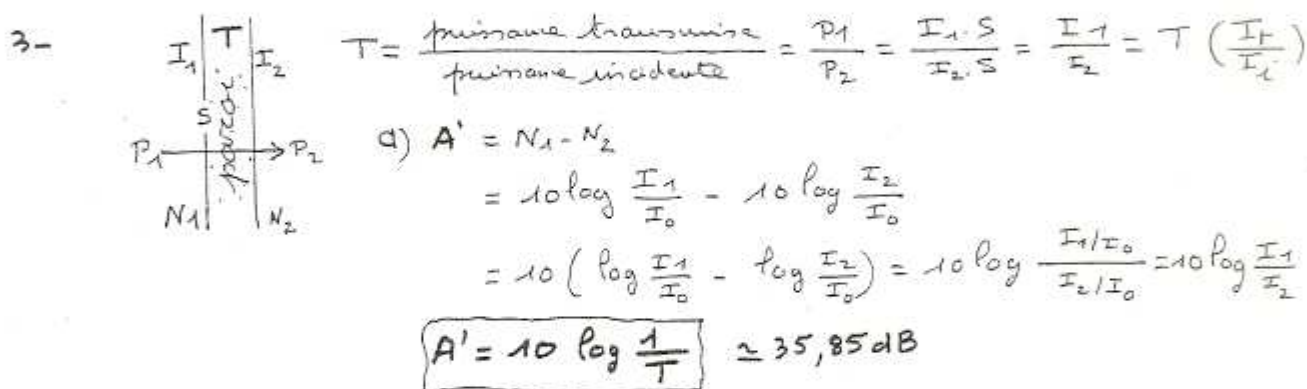 3-
I₁ T I₂
S paroi
P₁ → P₂
N1 N₂
T = puissance transmise / puissance incidente = P1 / P₂ = I₁.S / I₂.S = I1 / I₂ = T (It / Ii)
a) A' = N₁ - N₂
= 10 log I₁/I₀ - 10 log I₂/I₀
= 10 ( log I1/I₀ - log I₂/I₀ ) = 10 log (I₁/I₀) / (I₂/I₀) = 10 log I₁/I₂
A' = 10 log 1/T ≃ 35,85 dB